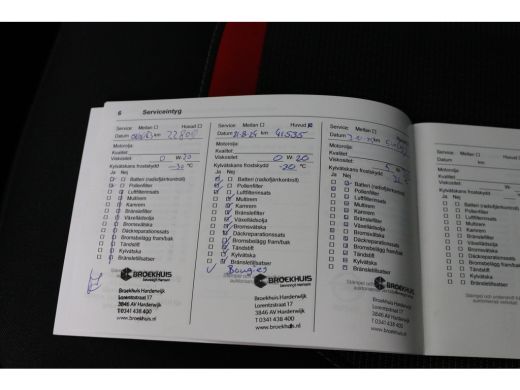 6 Serviceintyg
Service: Mellan Huvud
Datum km 22800
Motorolja:
Kvalitet:
Viskositet: 0 W-20
Kylvätskans frostskydd -30 °C
Ja Nej
Batteri (radiofjärrkontroll)
Pollenfilter
Luftfilterinsats
Multirem
Kamrem
Bränslefilter
Växellådsolja
Bromsvätska
Däckreparationssats
Bromsbelägg fram/bak
Tändstift
Kylvätska
Bränsletillsatser
BROEKHUIS
Broekhuis Harderwijk
Lorentzstraat 17
3846 AV Harderwijk
T 0341 438 400
www.broekhuis.nl
Service: Mellan Huvud
Datum 21-8-24 km 41535
Motorolja:
Kvalitet:
Viskositet: 0 W-20
Kylvätskans frostskydd -20 °C
Ja Nej
Batteri (radiofjärrkontroll)
Pollenfilter
Luftfilterinsats
Multirem
Kamrem
Bränslefilter
Växellådsolja
Bromsvätska
Däckreparationssats
Bromsbelägg fram/bak
Tändstift
Kylvätska
Bränsletillsatser
Bougies
BROEKHUIS
Broekhuis Harderwijk
Lorentzstraat 17
3846 AV Harderwijk
T 0341 438 400
www.broekhuis.nl
Service: Mellan Huvud
Datum km
Motorolja:
Kvalitet:
Viskositet:
Kylvätskans frostskydd
Ja Nej
Batteri (radiofjärrkontroll)
Pollenfilter
Luftfilterinsats
Multirem
Kamrem
Bränslefilter
Växellådsolja
Bromsvätska
Däckreparationssats
Bromsbelägg fram/bak
Tändstift
Kylvätska
Bränsletillsatser
BROEKHUIS
Broekhuis Harderwijk
Lorentzstraat 17
3846 AV Harderwijk
T 0341 438 400
www.broekhuis.nl
Service: Mellan
Datum
Motorolja:
Kvalitet:
Viskositet:
Kylvätskans frostskydd
Ja Nej
Batteri
Pollenfilter
Luftfilterinsats
Multirem
Kamrem
Bränslefilter
Växellådsolja
Bromsvätska
Däckreparationssats
Bromsbelägg
Tändstift
Kylvätska
Bränsletillsatser